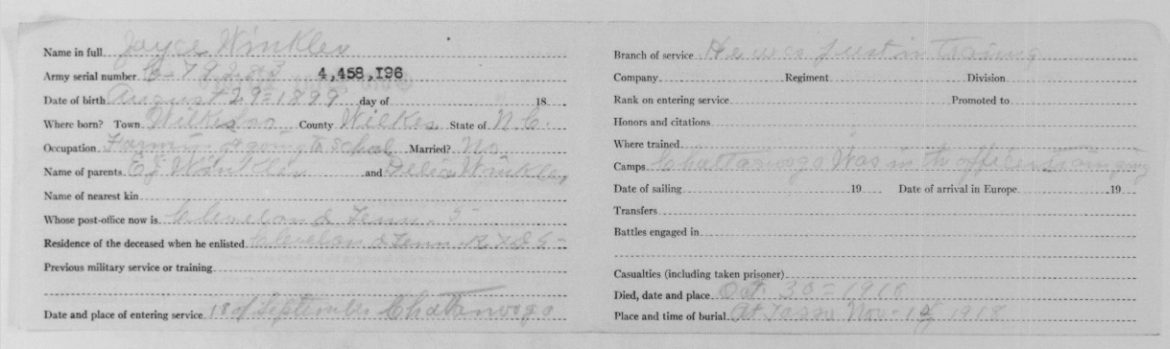 Name in full Jayce Winkler
Army serial number 4,458,196
Date of birth August 29=1899 day of 18
Where born? Town Wilkesboro County Wilkes State of N.C.
Occupation Farming & going to School Married? No
Name of parents E.J. Winkler and Delia Winkler
Name of nearest kin
Whose post-office now is Cleveland Tenn. 5
Residence of the deceased when he enlisted Cleveland Tenn
Previous military service or training
Date and place of entering service 18 of September Chattanooga
Branch of service He was just in Traning
Company Regiment Division
Rank on entering service Promoted to
Honors and citations
Where trained
Camps Chattanooga Was in th officers
Date of sailing 19 Date of arrival in Europe 19
Transfers
Battles engaged in
Casualties (including taken prisoner)
Died, date and place Oct 30=1918
Place and time of burial At Tasso Nov 1918